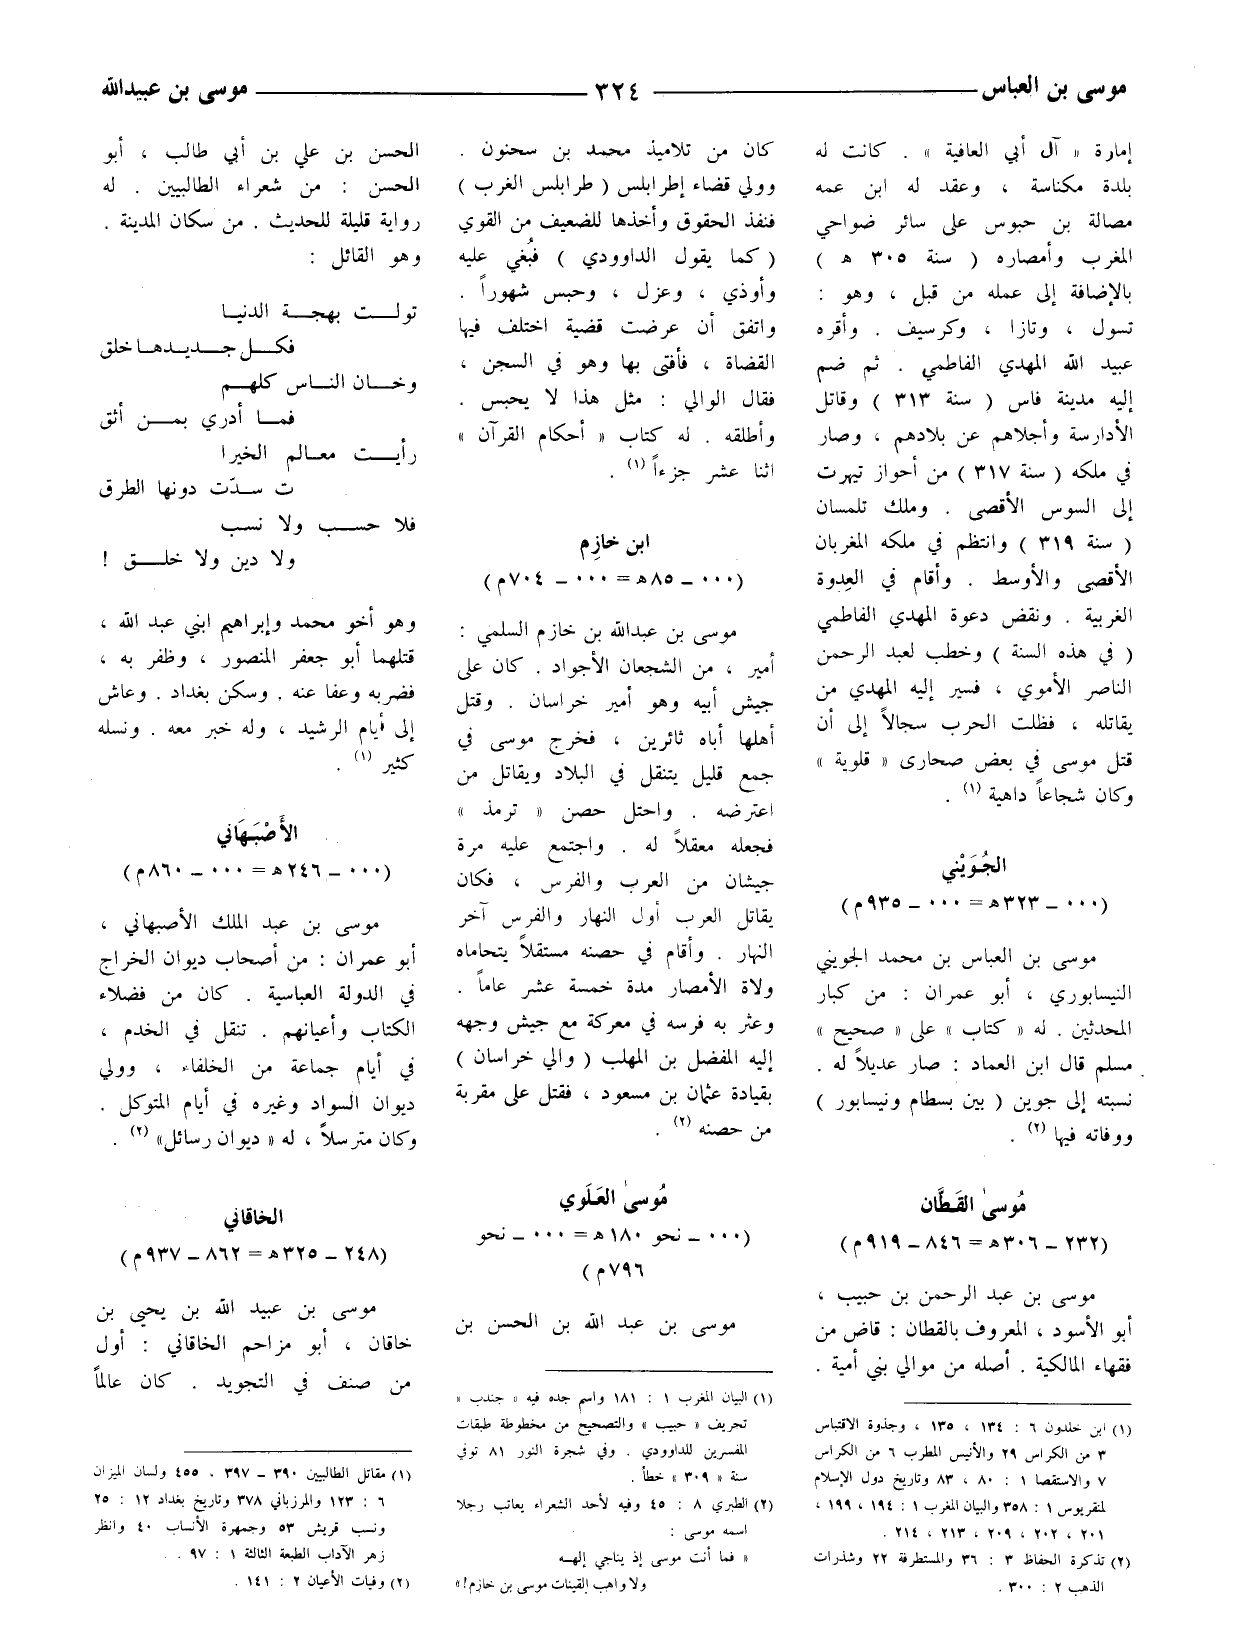 موسى بن العباس ــــ ٣٢٤ ــــ موسى بن عبيدالله
إمارة « آل أبي العافية » . كانت له
بلدة مكناسة ، وعقد له ابن عمه
مصالة بن حبوس على سائر ضواحي
المغرب وأمصاره ( سنة ٣٠٥ ه )
بالإضافة إلى عمله من قبل ، وهو :
تسول ، وتازا ، وكرسيف . وأقره
عبيد الله المهدي الفاطمي . ثم ضم
إليه مدينة فاس ( سنة ٣١٣ ) وقاتل
الأدارسة وأجلاهم عن بلادهم ، وصار
في ملكه ( سنة ٣١٧ ) من أحواز تيهرت
إلى السوس الأقصى . وملك تلمسان
( سنة ٣١٩ ) وانتظم في ملكه المغربان
الأقصى والأوسط . وأقام في العِدوة
الغربية . ونقض دعوة المهدي الفاطمي
( في هذه السنة ) وخطب لعبد الرحمن
الناصر الأموي ، فسير إليه المهدي من
يقاتله ، فظلت الحرب سجالاً إلى أن
قتل موسى في بعض صحارى « قلوية »
وكان شجاعاً داهية (١) .
الجُوَيْني
(٠٠٠ ـ ٣٢٣ه = ٠٠٠ ـ ٩٣٥م)
موسى بن العباس بن محمد الجويني
النيسابوري ، أبو عمران : من كبار
المحدثين . له « كتاب » على « صحيح »
مسلم قال ابن العماد : صار عديلاً له .
نسبته إلى جوين ( بين بسطام ونيسابور )
ووفاته فيها (٢) .
مُوسىٰ القَطَّان
(٢٣٢ ـ ٣٠٦ه = ٨٤٦ ـ ٩١٩م)
موسى بن عبد الرحمن بن حبيب ،
أبو الأسود ، المعروف بالقطان : قاض من
فقهاء المالكية . أصله من موالي بني أمية .
(١) ابن خلدون ٦ : ١٣٤ ، ١٣٥ ، وجذوة الاقتباس
٣ من الكراس ٢٩ والأنيس المطرب ٦ من الكراس
٧ والاستقصا ١ : ٨٠ ، ٨٣ وتاريخ دول الإسلام
لمنقريوس ١ : ٣٥٨ والبيان المغرب ١ : ١٩٤ ، ١٩٩ ،
٢٠١ ، ٢٠٢ ، ٢٠٩ ، ٢١٣ ، ٢١٤ .
(٢) تذكرة الحفاظ ٣ : ٣٦ والمستطرفة ٢٢ وشذرات
الذهب ٢ : ٣٠٠ .
كان من تلاميذ محمد بن سحنون .
وولي قضاء إطرابلس ( طرابلس الغرب )
فنفذ الحقوق وأخذها للضعيف من القوي
( كما يقول الداوودي ) فبُغي عليه
وأوذي ، وعزل ، وحبس شهوراً .
واتفق أن عرضت قضية اختلف فيها
القضاة ، فأفتى بها وهو في السجن ،
فقال الوالي : مثل هذا لا يحبس .
وأطلقه . له كتاب « أحكام القرآن »
اثنا عشر جزءاً (١) .
ابن خازِم
(٠٠٠ ـ ٨٥ه = ٠٠٠ ـ ٧٠٤م)
موسى بن عبدالله بن خازم السلمي :
أمير ، من الشجعان الأجواد . كان على
جيش أبيه وهو أمير خراسان . وقتل
أهلها أباه ثائرين ، فخرج موسى في
جمع قليل يتنقل في البلاد ويقاتل من
اعترضه . واحتل حصن « ترمذ »
فجعله معقلاً له . واجتمع عليه مرة
جيشان من العرب والفرس ، فكان
يقاتل العرب أول النهار والفرس آخر
النهار . وأقام في حصنه مستقلاً يتحاماه
ولاة الأمصار مدة خمسة عشر عاماً .
وعثر به فرسه في معركة مع جيش وجهه
إليه المفضل بن المهلب ( والي خراسان )
بقيادة عثمان بن مسعود ، فقتل على مقربة
من حصنه (٢) .
مُوسىٰ العَلَوي
(٠٠٠ ـ نحو ١٨٠ه = ٠٠٠ ـ نحو
٧٩٦م)
موسى بن عبد الله بن الحسن بن
(١) البيان المغرب ١ : ١٨١ واسم جده فيه « جندب »
تحريف « حبيب » والتصحيح من مخطوطة طبقات
المفسرين للداوودي . وفي شجرة النور ٨١ توفي
سنة « ٣٠٩ » خطأ .
(٢) الطبري ٨ : ٤٥ وفيه لأحد الشعراء يعاتب رجلا
اسمه موسى :
« فما أنت موسى إذ يناجي إلهـه
ولا واهب القينات موسى بن خازم!»
الحسن بن علي بن أبي طالب ، أبو
الحسن : من شعراء الطالبيين . له
رواية قليلة للحديث . من سكان المدينة .
وهو القائل :
تولـت بهجـة الدنيـا
فكـل جـديـدهـا خلق
وخـان النـاس كلهـم
فمـا أدري بمـن أثق
رأيـت معـالم الخيرا
ت سـدّت دونها الطرق
فلا حسـب ولا نسب
ولا دين ولا خلـق !
وهو أخو محمد وإبراهيم ابني عبد الله ،
قتلهما أبو جعفر المنصور ، وظفر به ،
فضربه وعفا عنه . وسكن بغداد . وعاش
إلى أيام الرشيد ، وله خبر معه . ونسله
كثير (١) .
الأَصْبَهَاني
(٠٠٠ ـ ٢٤٦ه = ٠٠٠ ـ ٨٦٠م)
موسى بن عبد الملك الأصبهاني ،
أبو عمران : من أصحاب ديوان الخراج
في الدولة العباسية . كان من فضلاء
الكتاب وأعيانهم . تنقل في الخدم ،
في أيام جماعة من الخلفاء ، وولي
ديوان السواد وغيره في أيام المتوكل .
وكان مترسلاً ، له « ديوان رسائل» (٢) .
الخاقاني
(٢٤٨ ـ ٣٢٥ه = ٨٦٢ ـ ٩٣٧م)
موسى بن عبيد الله بن يحيى بن
خاقان ، أبو مزاحم الخاقاني : أول
من صنف في التجويد . كان عالماً
(١) مقاتل الطالبيين ٣٩٠ ـ ٣٩٧ ، ٤٥٥ ولسان الميزان
٦ : ١٢٣ والمرزباني ٣٧٨ وتاريخ بغداد ١٢ : ٢٥
ونسب قريش ٥٣ وجمهرة الأنساب ٤٠ وانظر
زهر الآداب الطبعة الثالثة ١ : ٩٧ .
(٢) وفيات الأعيان ٢ : ١٤١ .